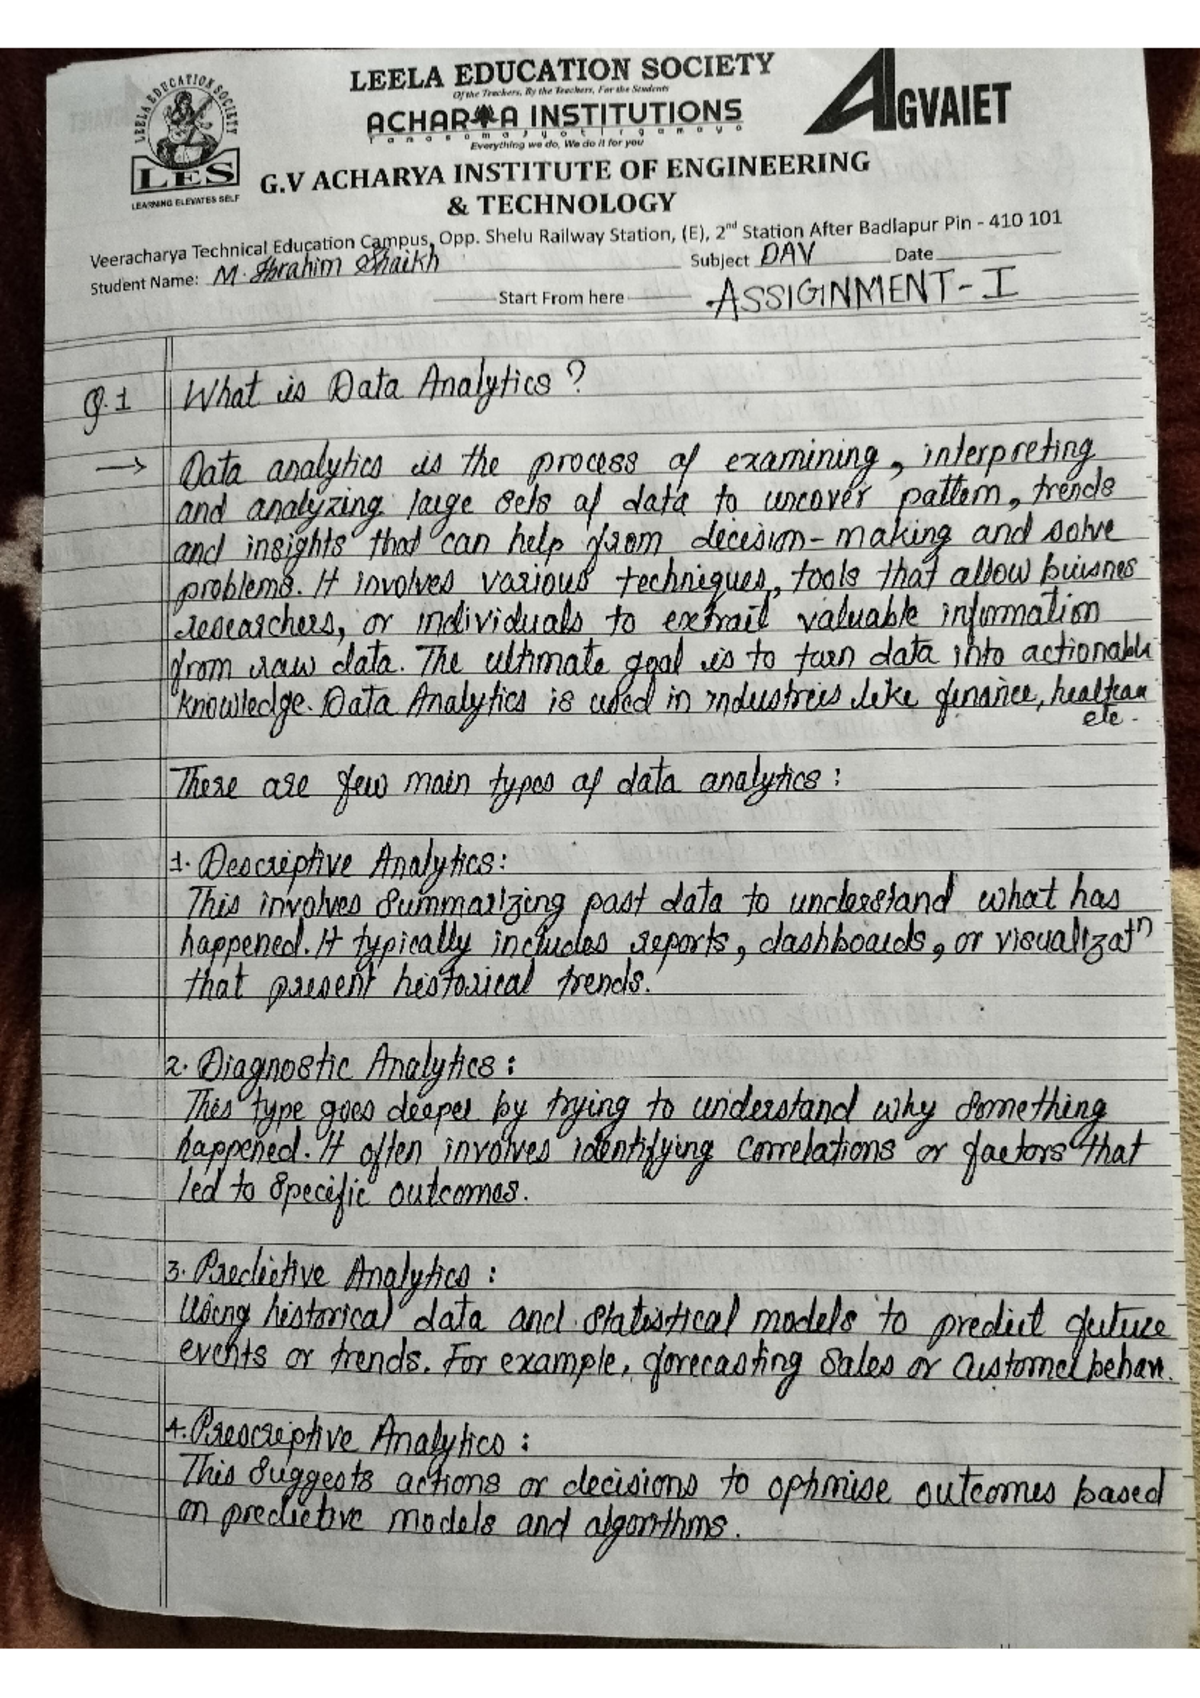 LEELA EDUCATION SOCIETY
Of the Teachers, By the Teachers, For the Students
ACHARYA INSTITUTIONS
Tamasomajyotirgamaya
Everything we do, We do it for you
AGVAIET
LEELA EDUCATION SOCIETY
LES
LEARNING ELEVATES SELF
G.V ACHARYA INSTITUTE OF ENGINEERING
& TECHNOLOGY
Veeracharya Technical Education Campus, Opp. Shelu Railway Station, (E), 2nd Station After Badlapur Pin - 410 101
Student Name: M. Ibrahim Shaikh Subject DAV Date
Start From here ASSIGNMENT-I
Q.1 What is Data Analytics ?
→ Data analytics is the process of examining, interpreting
and analyzing large sets of data to uncover pattern, trends
and insights that can help from decision-making and solve
problems. It involves various techniques, tools that allow buisnes
researchers, or individuals to extrait valuable information
from raw data. The ultimate goal is to turn data into actionable
knowledge. Data Analytics is used in industries like finance, healtcare
etc.
There are few main types of data analytics :
1. Descriptive Analytics:
This involves Summarizing past data to understand what has
happened. It typically includes reports, dashboards, or visualizatn
that present historical trends.
2. Diagnostic Analytics :
This type goes deeper by trying to understand why Something
happened. It often involves identifying Correlations or factors that
led to Specific outcomes.
3. Predictive Analytics :
Using historical data and Statistical models to predict future
events or trends. For example, forecasting Sales or Customer behav.
4. Prescriptive Analytics :
This Suggests actions or decisions to optimise outcomes based
on predictive models and algorithms.